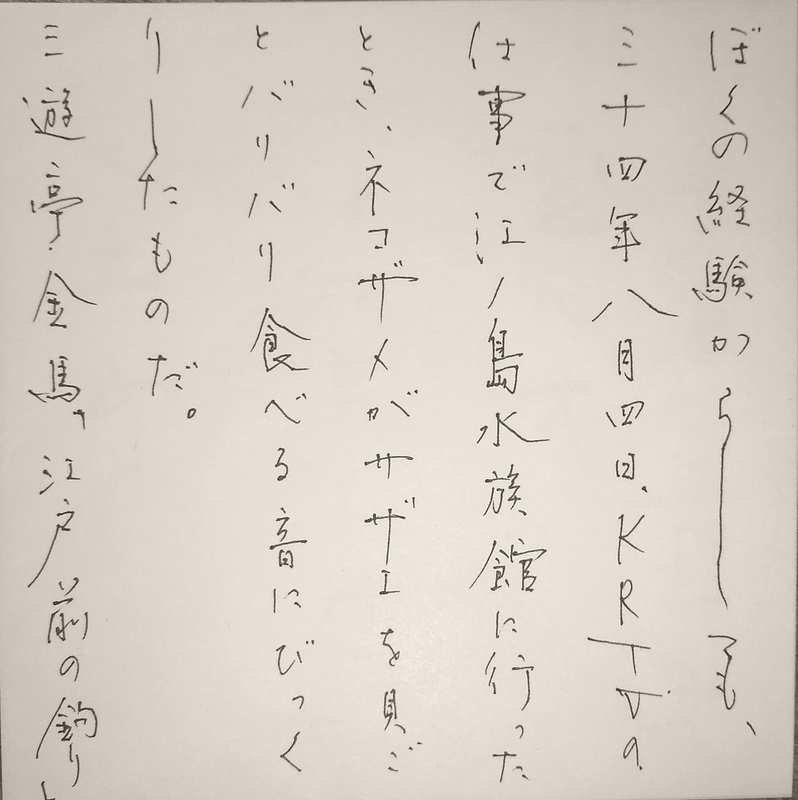 ぼくの経験から――でも、
三十四年八月四日、KRTVの
仕事で江ノ島水族館に行った
とき、ネコザメがサザエを貝ご
とバリバリ食べる音にびっく
りしたものだ。
三遊亭金馬、江戸前の釣り